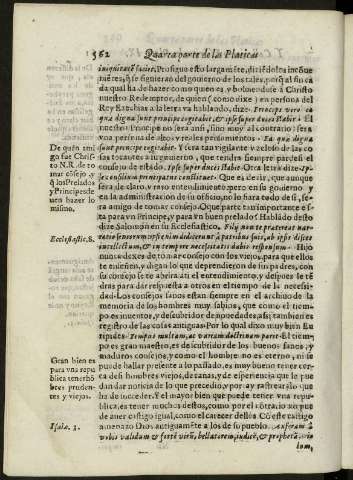 562 Quarta parte de las Platicas
iniquitatē facite. Prosiguo esto largamēte, diziēdoles incōue
niētes, q̃ se siguieran del gouierno de los tales, porq̃ al fin ca
da qual ha de hazer como quien es, y boluiendose à Christo
nuestro Redemptor, de quien (como dixe) en persona del
Rey Ezechias a la letra va hablando, dize: Princeps vero ea
quæ digna sunt principe cogitabit, & ipse super duces stabit. El
nuestro Principe no sera ansi, sino muy al contrario: sera
vna persona de alto, y reales pensamientos: Ea quæ digna
sunt principe cogitabit. Y sera tan vigilante y zeloso de las co
sas tocantes a su gouierno, que tendra siempre para si el
consejo de estado. Ipse super duces stabit. Otra letra dize: Ip-
se consilium principatus constituet. Que es, dezir, que aunque
sera de claro, y raro entendimiento, pero en su gouierno y
en la administracion de su officio, no lo hara todo de si, se-
ra amigo de tomar consejo. O que parte tan importante es
sta para vn Principe, y para vn buen prelado! Hablādo desto
dize Salomon en su Ecclesiastico. Fili ne te prætereat nar-
ratio seniorum: ipsi enim didicerunt à patribus suis, ab ipsis disces
intellectum, & in tempore necessitatis dabis responsum. Hijo
nunca dexes de tomar consejo con los viejos, para que ellos
te enseñen, y digan lo que deprendieron de sus padres, con
lo qual se te abrira, el entendimiento, y despues te tē
dras para dar respuesta a otros en el tiempo de la necessi-
dad. Los consejos sanos estan siempre en el archiuo de la
memoria de los hombres muy sabios, que como el tiem-
po es inuentor, y descubridor de nouedades, assi tambien es
registro de las cosas antiguas. Por lo qual dixo muy bien Eu
ripides. Tempus multam, ac variam doctrinam parit. El tiempo
es gran maestro, es descubridor de los buenos sanos, y
maduros consejos, y como el hombre no es eterno, ni se
puede hallar presente a lo passado, es muy bueno tener cer
ca de si hombres viejos, de canas, y de esperiencia que le pue
dan dar noticia de lo que precedio, y por ay rastrear à lo que
ha de suceder. El mayor bien que puede tener vna repu-
blica, es tener muchos destos, como por el contrario no pue
de auer castigo igual, como el carecer dellos. Cō este castigo
amenazo Dios antiguamēte a los de su pueblo. Auferam à
vobis validum & fortē virū, bellatorem, iudicē, & prophetā, vio
lum,
De quan ami
go fue Chris-
to N.R. de to
mar cōsejo, y
q̃ los Prelados
y Principes de
uen hazer lo
mismo.
Ecclesiastic. 8.
Gran bien es
para vna repu
blica tener hō
bres pruden-
tes y viejos.
Isaiæ. 3.